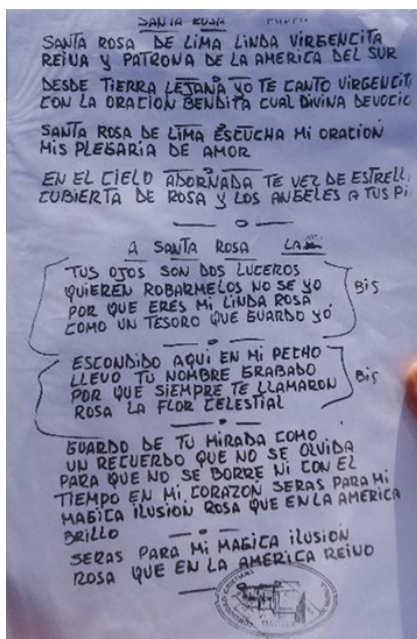 SANTA ROSA
SANTA ROSA DE LIMA LINDA VIRGENCITA
REINA Y PATRONA DE LA AMERICA DEL SUR
DESDE TIERRA LEJANA YO TE CANTO VIRGENCIT
CON LA ORACION BENDITA CUAL DIVINA DEVOCIO
SANTA ROSA DE LIMA ESCUCHA MI ORACION
MIS PLEGARIA DE AMOR
EN EL CIELO ADORNADA TE VEZ DE ESTRELL
CUBIERTA DE ROSA Y LOS ANGELES A TUS PI
A SANTA ROSA
TUS OJOS SON DOS LUCEROS
QUIEREN ROBARMELOS NO SE YO
POR QUE ERES MI LINDA ROSA
COMO UN TESORO QUE GUARDO YO
BIS
ESCONDIDO AQUI EN MI PECHO
LLEVO TU NOMBRE GRABADO
POR QUE SIEMPRE TE LLAMARON
ROSA LA FLOR CELESTIAL
BIS
GUARDO DE TU MIRADA COMO
UN RECUERDO QUE NO SE OLVIDA
PARA QUE NO SE BORRE NI CON EL
TIEMPO EN MI CORAZON SERAS PARA MI
MAGICA ILUSION ROSA QUE EN LA AMERICA
BRILLO
SERAS PARA MI MAGICA ILUSION
ROSA QUE EN LA AMERICA REINO